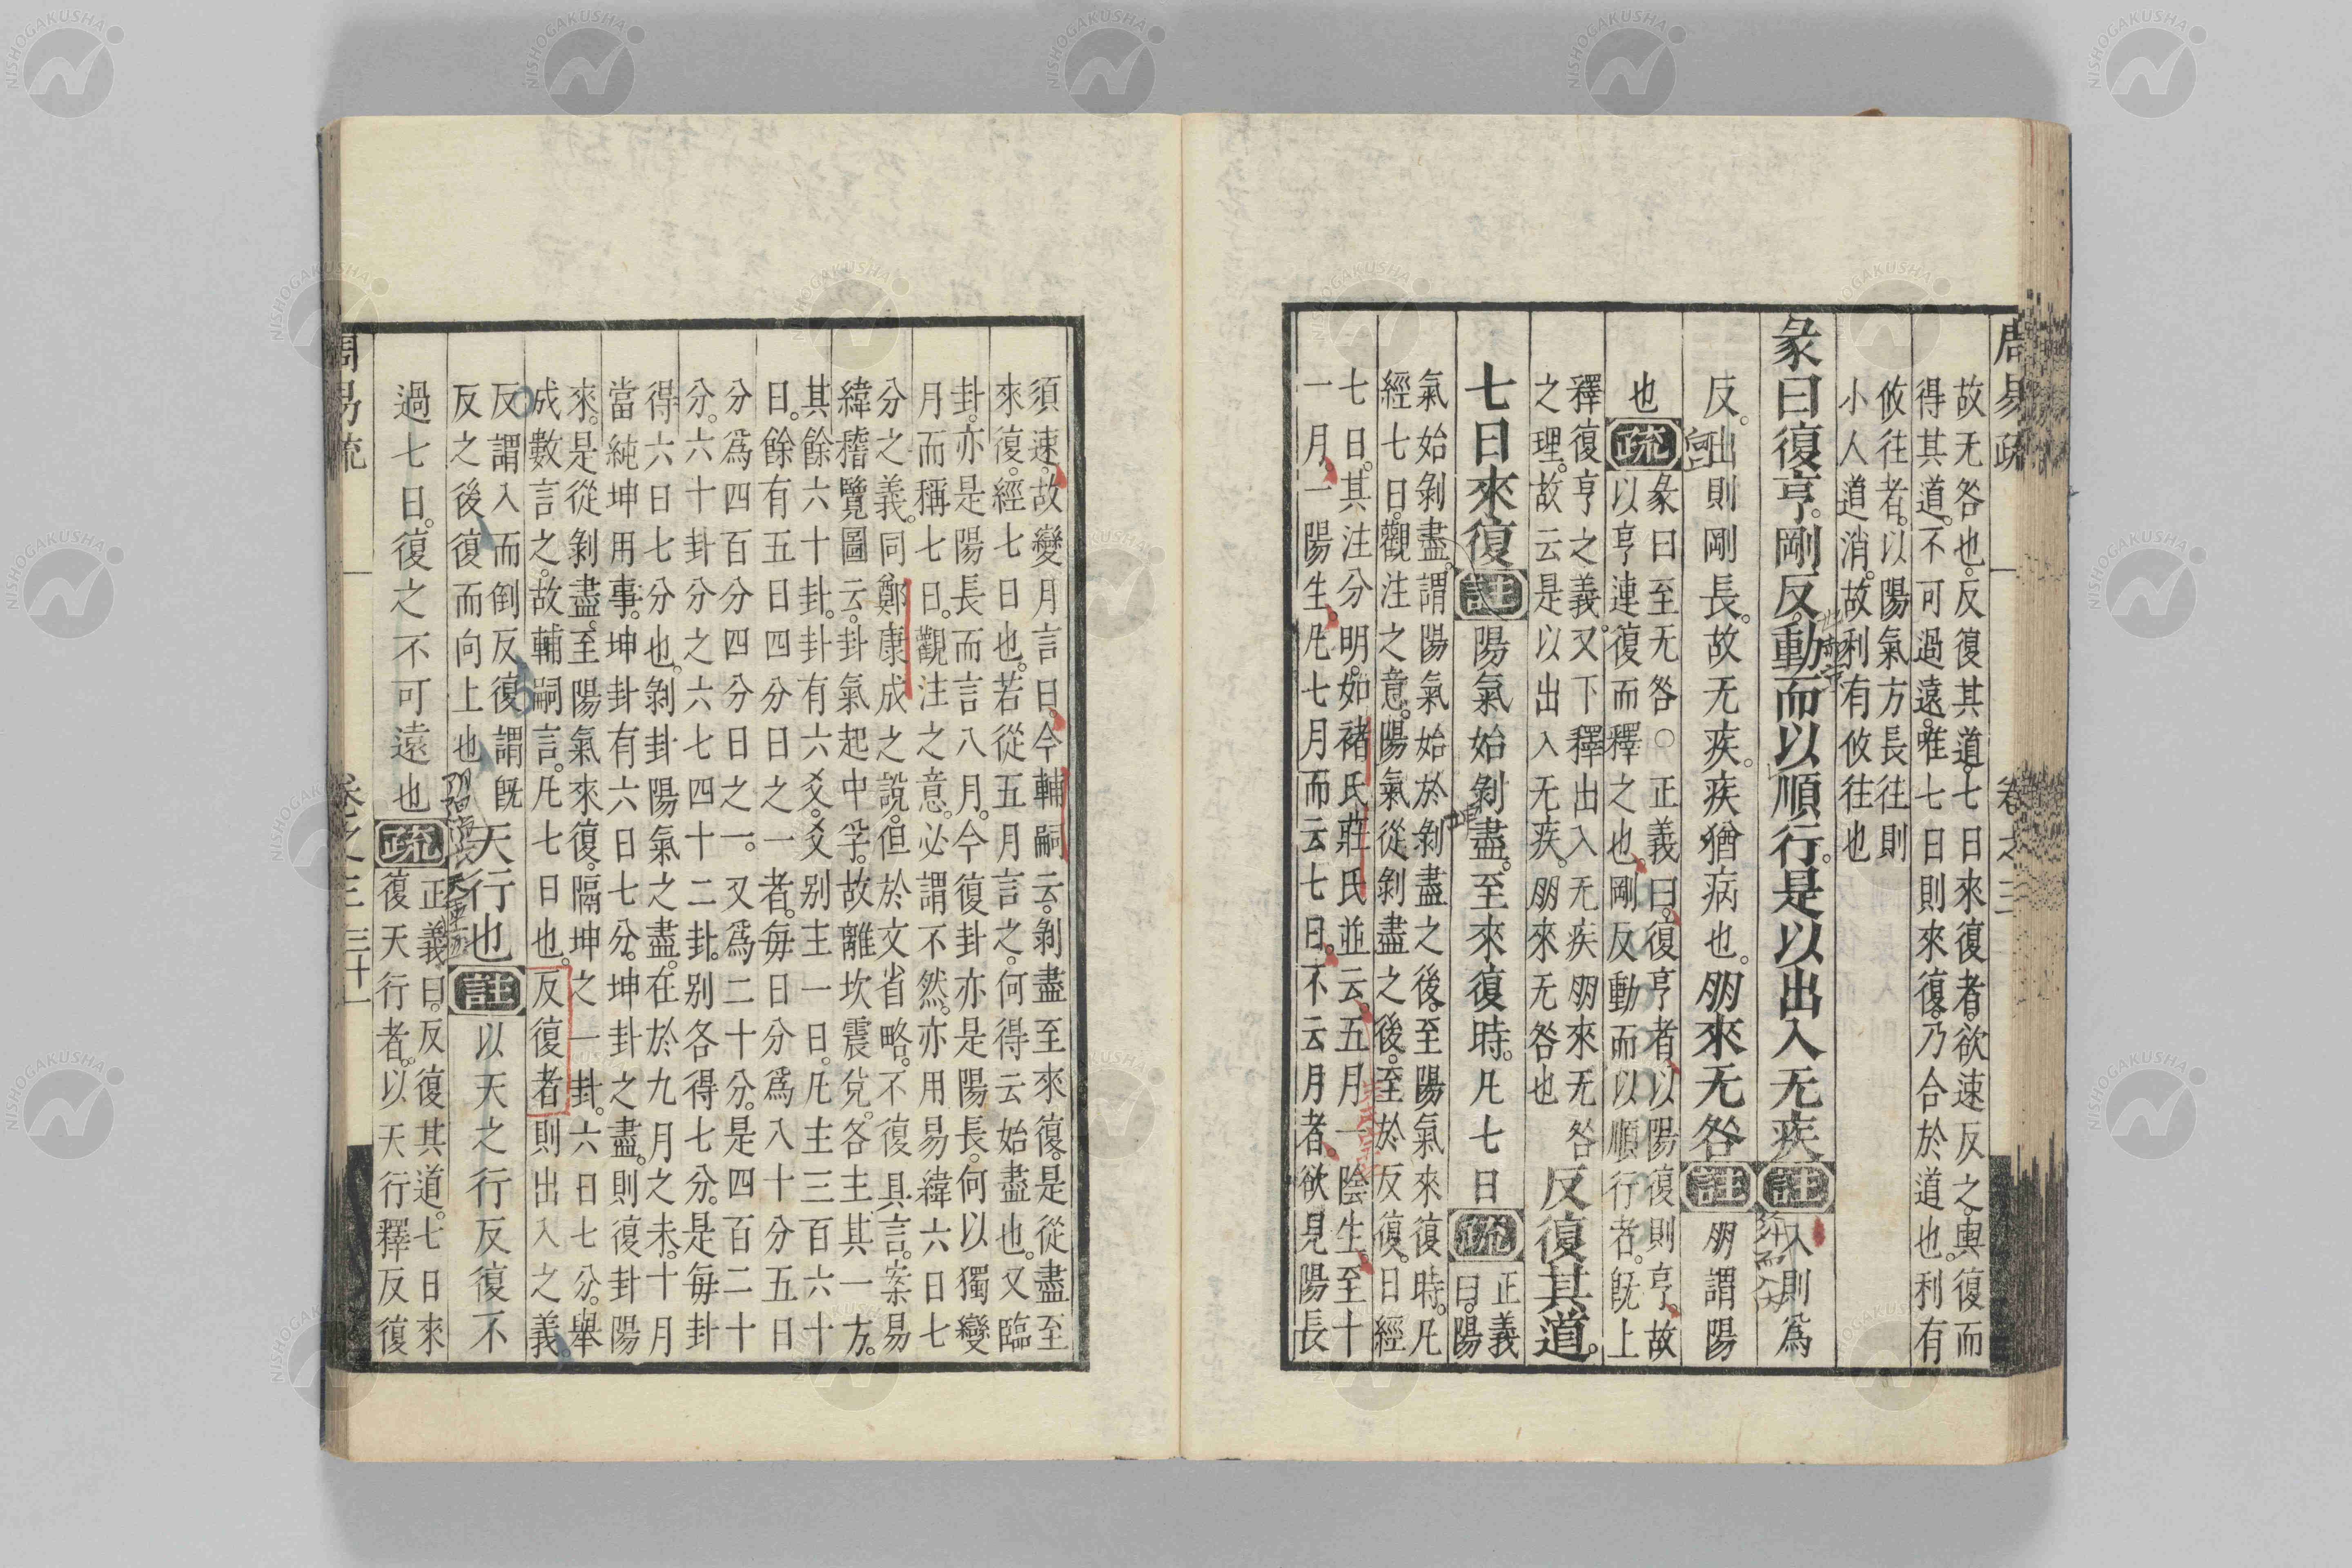 周易疏 卷之三
故无咎也。反復其道。七日來復者。欲速反之。與復而
得其道。不可過遠。唯七日則來復。乃合於道也。利有
攸往者。以陽氣方長往則
小人道消。故利有攸往也
彖曰復亨。剛反。動而以順行。是以出入无疾註入則爲
反。出則剛長。故无疾。疾猶病也。朋來无咎註朋謂陽
也疏彖曰至无咎○正義曰。復亨者。以陽復則亨。故
以亨連復而釋之也。剛反動而以順行者。既上
釋復亨之義。又下釋出入无疾朋來无咎
之理。故云是以出入无疾。朋來无咎也
反復其道。
七日來復註陽氣始剝盡。至來復時。凡七日疏正義
曰。陽
氣始剝盡。謂陽氣始於剝盡之後。至陽氣來復時。凡
經七日。觀注之意。陽氣從剝盡之後。至於反復。日經
七日。其注分明。如褚氏莊氏並云。五月一陰生。至十
一月一陽生。凡七月而云七日。不云月者。欲見陽長
須速。故變月言日。今輔嗣云。剝盡至來復。是從盡至
來復。經七日也。若從五月言之。何得云始盡也。又臨
卦。亦是陽長而言八月。今復卦亦是陽長。何以獨變
月而稱七日。觀注之意。必謂不然。亦用易緯六日七
分之義。同鄭康成之說。但於文省略。不復具言。案易
緯稽覽圖云。卦氣起中孚。故離坎震兌。各主其一方。
其餘六十卦。卦有六爻。爻別主一日。凡主三百六十
日。餘有五日四分日之一者。每日分爲八十分五日
分爲四百分四分日之一。又爲二十分。是四百二十
分。六十卦分之六七四十二卦。別各得七分。是每卦
得六日七分也。剝卦陽氣之盡。在於九月之未。十月
當純坤用事。坤卦有六日七分。坤卦之盡。則復卦陽
來。是從剝盡。至陽氣來復。隔坤之一卦。六日七分。舉
成數言之。故輔嗣言。凡七日也。反復者則出入之義。
反謂入而倒反復謂既
反之後復而向上也
天行也註以天之行反復不
過七日。復之不可遠也疏正義曰。反復其道。七日來
復天行者。以天行釋反復
周易疏 卷之三 三十一